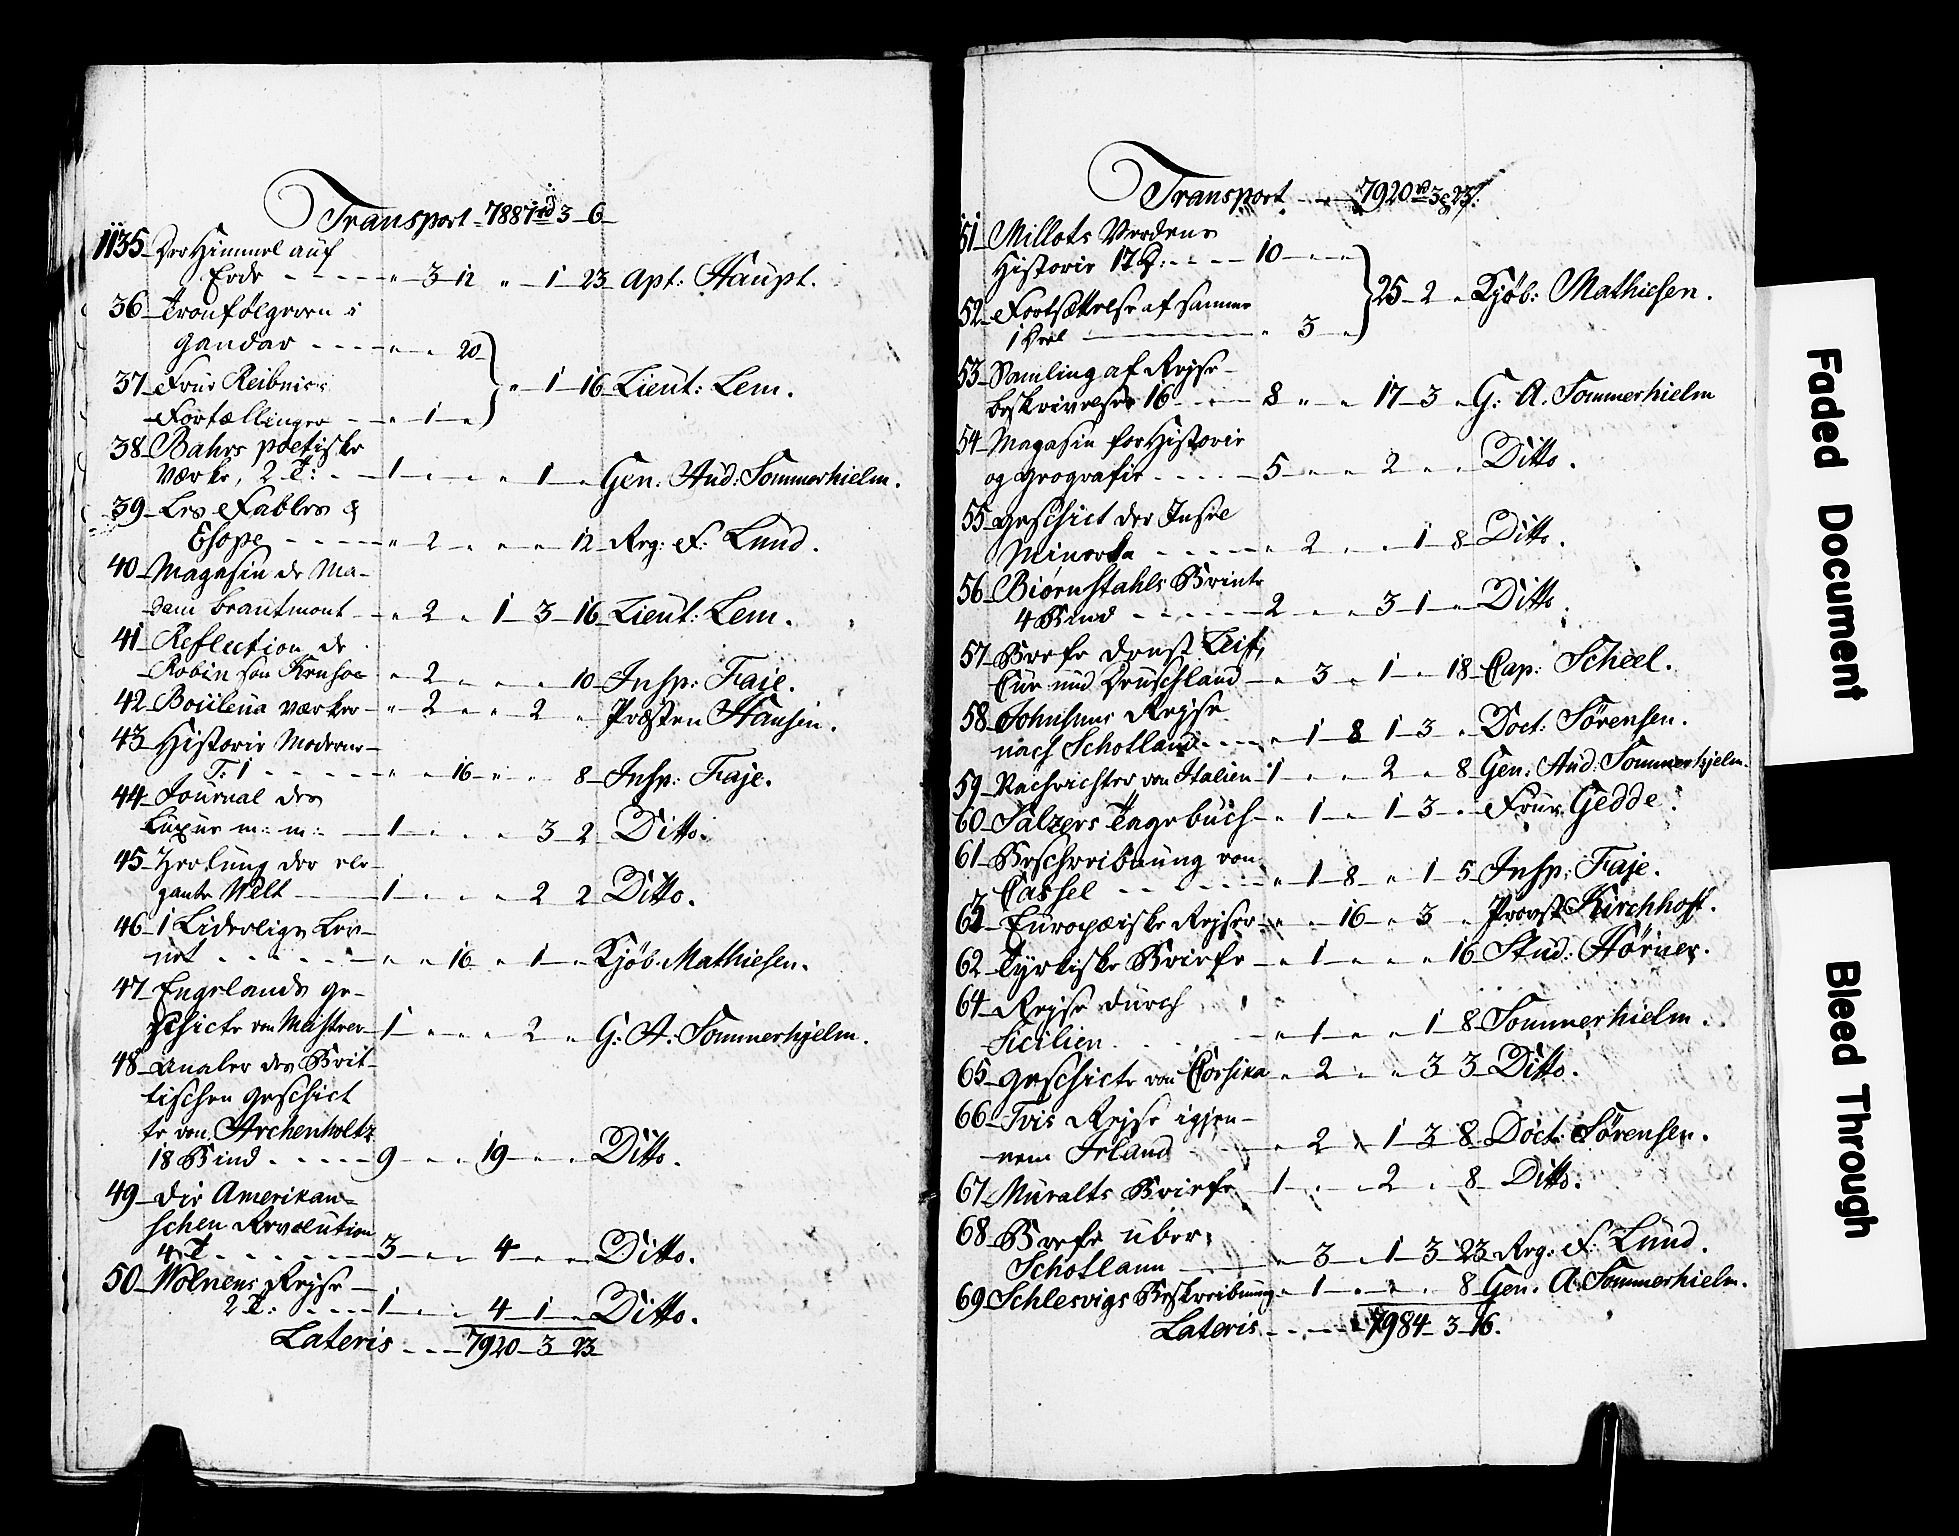 Transport - 7887 rd 3 - 6 -
1135 Der Himmel auf
Erde - - - - " 3 12 " 1 23 Apt: Haupt.
36 Tronfølgeren i
Gandar - - - " " 20
37 Frue Reibnics
Fortællinger - " 1 " } " 1 16 Lieut: Lem.
38 Bahrs poetiske
Værke, 2 T: - 1 " " " 1 " Gen: Aud: Sommerhielm.
39 Les Fables d
Esope - - - - " 2 " " " 12 Reg: F: Lund.
40 Magasin de Ma-
dam Brantmont - " 2 " 1 3 16 Lieut: Lem.
41 Reflection de
Robinson Krusoe " 2 " " " 10 Insp: Faje.
42 Boilena Værker - " 2 " " 2 " Præsten Hansen.
43 Historie Moderne -
T: 1 - - - - - " " 16 " " 8 Insp: Faje.
44 Journal des
Luxus m: m: - 1 " " " 3 2 Ditto.
45 Zeitung der ele-
gante Welt - 1 " " " 2 2 Ditto.
46 1 Liderlige Lev-
net - - - - - " " 16 " 1 " Kjøb: Mathiesen.
47 Engelands ge-
schicte von Meistrer - 1 " " " 2 " G: A: Sommerhjelm.
48 Analer des Brit-
tischen Geschict
te von Archenholtz
18 Bind - - - - 9 " " 19 " " " Ditto.
49 Die Amerikan-
schen Revolution
4 T - - - - - 3 " " 4 " " " Ditto.
50 Wolnens Rejse -
2 T: - - - - 1 " " 4 1 " Ditto.
Lateris - - - 7920 - 3 23
Transport - - 7920 rd 3 23
51 Millots Verdens
Historie 17 T: - - - 10 " "
52 Fortsættelse af samme
i Qvel - " 3 " } 25 2 " Kjøb: Mathiesen.
53 Samling af Rejse-
beskrivelser 16 - - 8 " " 17 3 " G: A. Sommerhielm
54 Magasin for Historie
og Geografie - - - - 5 " " 2 " " Ditto.
55 Geschict der Insel
Minorka - - - - - " 2 " " 1 8 Ditto.
56 Biørnstahls Breve
4 Bind - - - - - 2 " " 3 1 " Ditto
57
Cur und Deuschland - " 3 " 1 " 18 Cap: Scheel.
58 Johnsons Rejse
nach Schotland - - - " 1 8 1 3 " Doct: Sørensen.
59 Nachrichter von Italien 1 " " 2 " 8 Gen: Aud: Sommerhjelm.
60 Salzers Tagebuch - " 1 " 1 3 " Frue Gedde.
61 Beschreibnung von
Cassel - - - - - " 1 8 " 1 5 Insp: Faje.
63 Europæiske Rejser - " " 16 " 3 " Provst Kirchhoff.
62 Tyrkiske Briefe - " 1 " " " 16 Stud: Hørner.
64 Rejse durch
Sicilien - - - " 1 " " 1 8 Sommerhielm.
65 Geschicte von Corsika " 2 " " 3 3 Ditto.
66 Tvis Rejse igjen-
nem Irland " 2 " 1 3 8 Doct: Sørensen.
67 Muralts Briefe 1 " " 2 " 8 Ditto.
68 Brefe über
Schotlann - " 3 " 1 3 23 Reg: F: Lund.
69 Schlesvigs Beskreibnung " 1 " " " 8 Gen. A. Sommerhielm.
Lateris - - - 7984 - 3 - 16.
Faded Document
Bleed Through